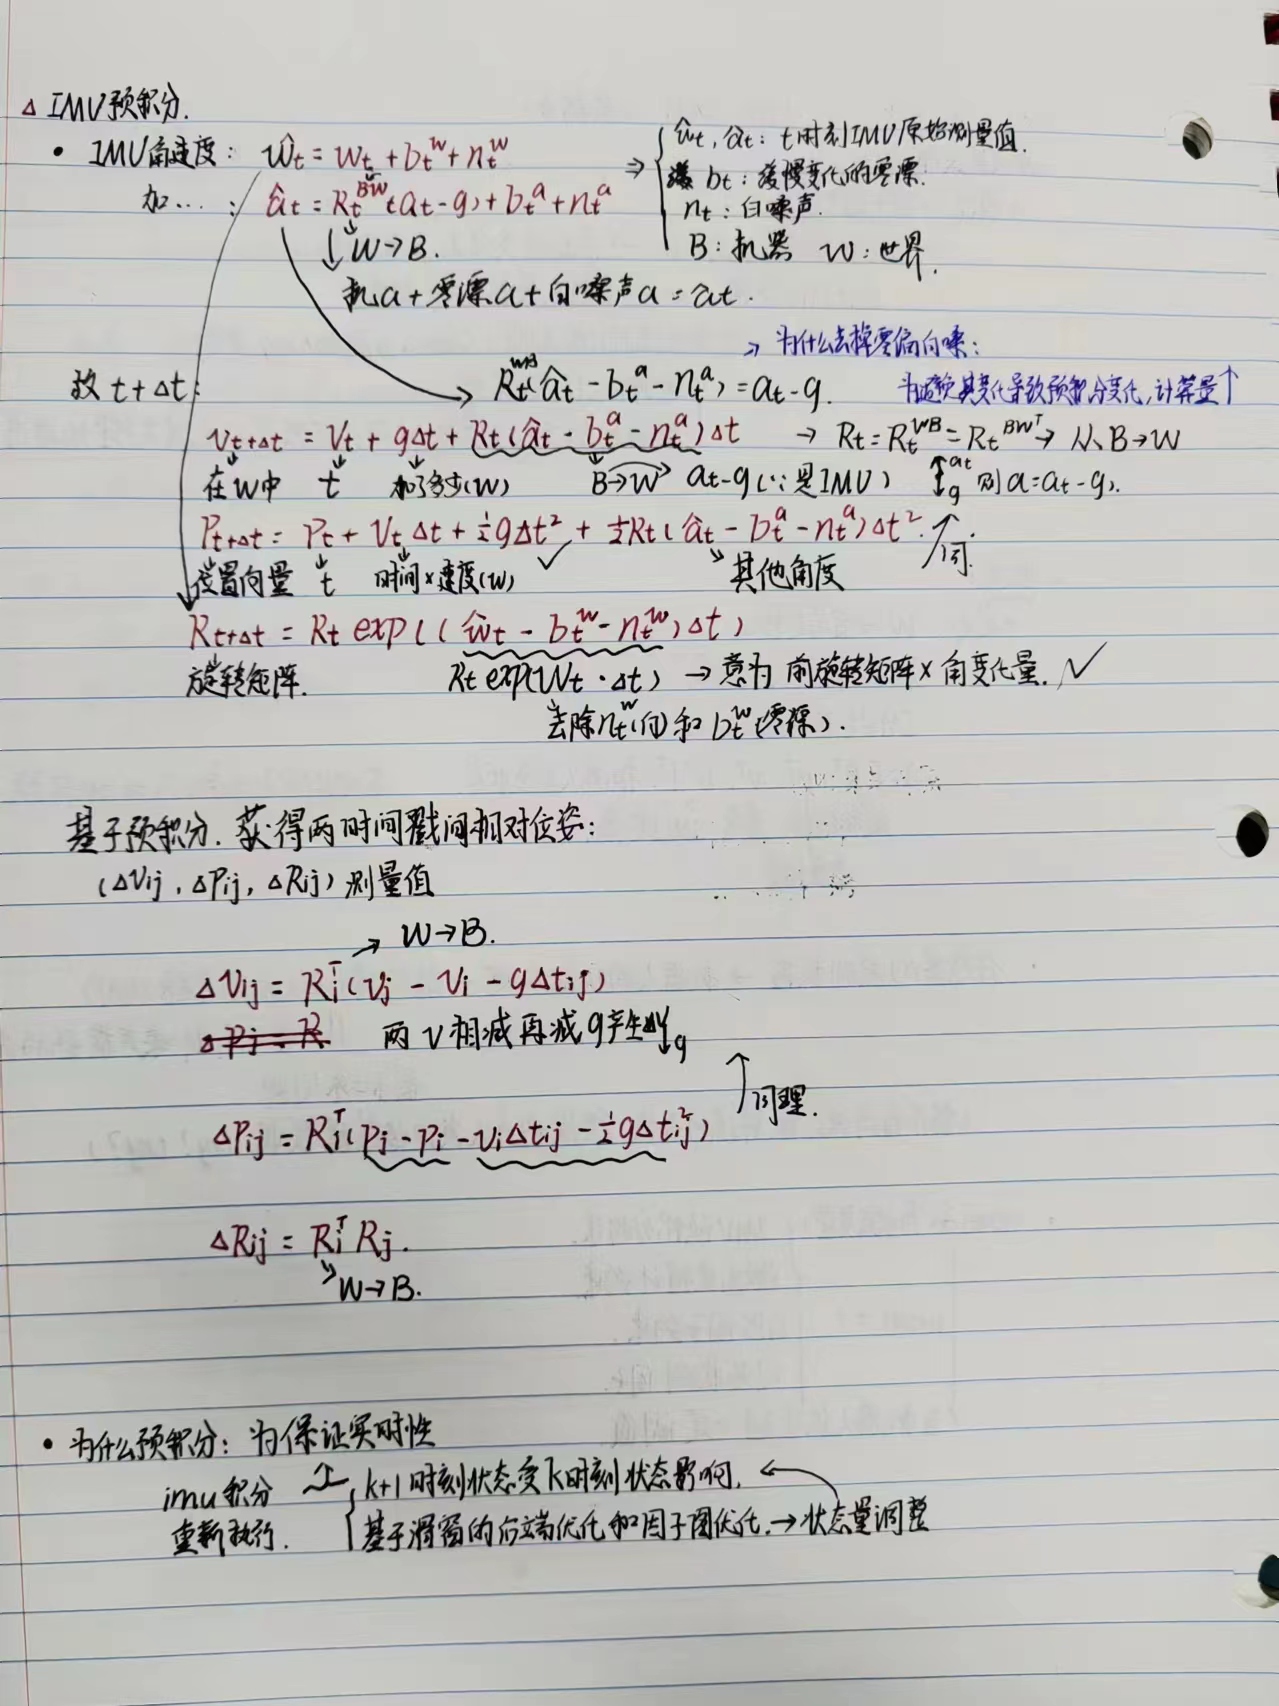 △ IMU预积分.
• IMU角速度: ŵt = wt + bt^w + nt^w
加…: ât = Rt^BW (at - g) + bt^a + nt^a
⇒ { ŵt, ât: t时刻IMU原始测量值.
bt: 缓慢变化的零漂.
nt: 白噪声.
B: 机器 W: 世界.
↓ W→B.
机a + 零漂a + 白噪声a = ât.
→ 为什么去掉零偏白噪:
为避免其变化导致预积分变化, 计算量↑
故 t+Δt:
Rt^WB (ât - bt^a - nt^a) = at - g.
Vt+Δt = Vt + gΔt + Rt (ât - bt^a - nt^a)Δt → Rt = Rt^WB = Rt^BW^T → 从B→W
在W中 t 加了多少(W) B→W → at-g (∵是IMU) ↕ at g 则 a = at - g).
Pt+Δt = Pt + Vt Δt + ½gΔt² + ½Rt (ât - bt^a - nt^a)Δt². ↑同.
位置向量 t 时间×速度(W) ✓ 其他角度
Rt+Δt = Rt exp((ŵt - bt^w - nt^w)Δt)
旋转矩阵. Rt exp(Wt · Δt) → 意为 前旋转矩阵 × 角变化量. ✓
去除nt^w(白)和 bt^w(零漂).
基于预积分. 获得两时间戳间相对位姿:
(ΔVij, ΔPij, ΔRij) 测量值
→ W→B.
ΔVij = Ri^T (Vj - Vi - gΔtij)
ΔPj = R 两V相减再减g产生ΔV g
↑同理.
ΔPij = Ri^T (Pj - Pi - ViΔtij - ½gΔtij²)
ΔRij = Ri^T Rj.
↘ W→B.
• 为什么预积分: 为保证实时性
imu积分 { k+1时刻状态受k时刻状态影响. ←
重新执行. 基于滑窗的后端优化和因子图优化. → 状态量调整